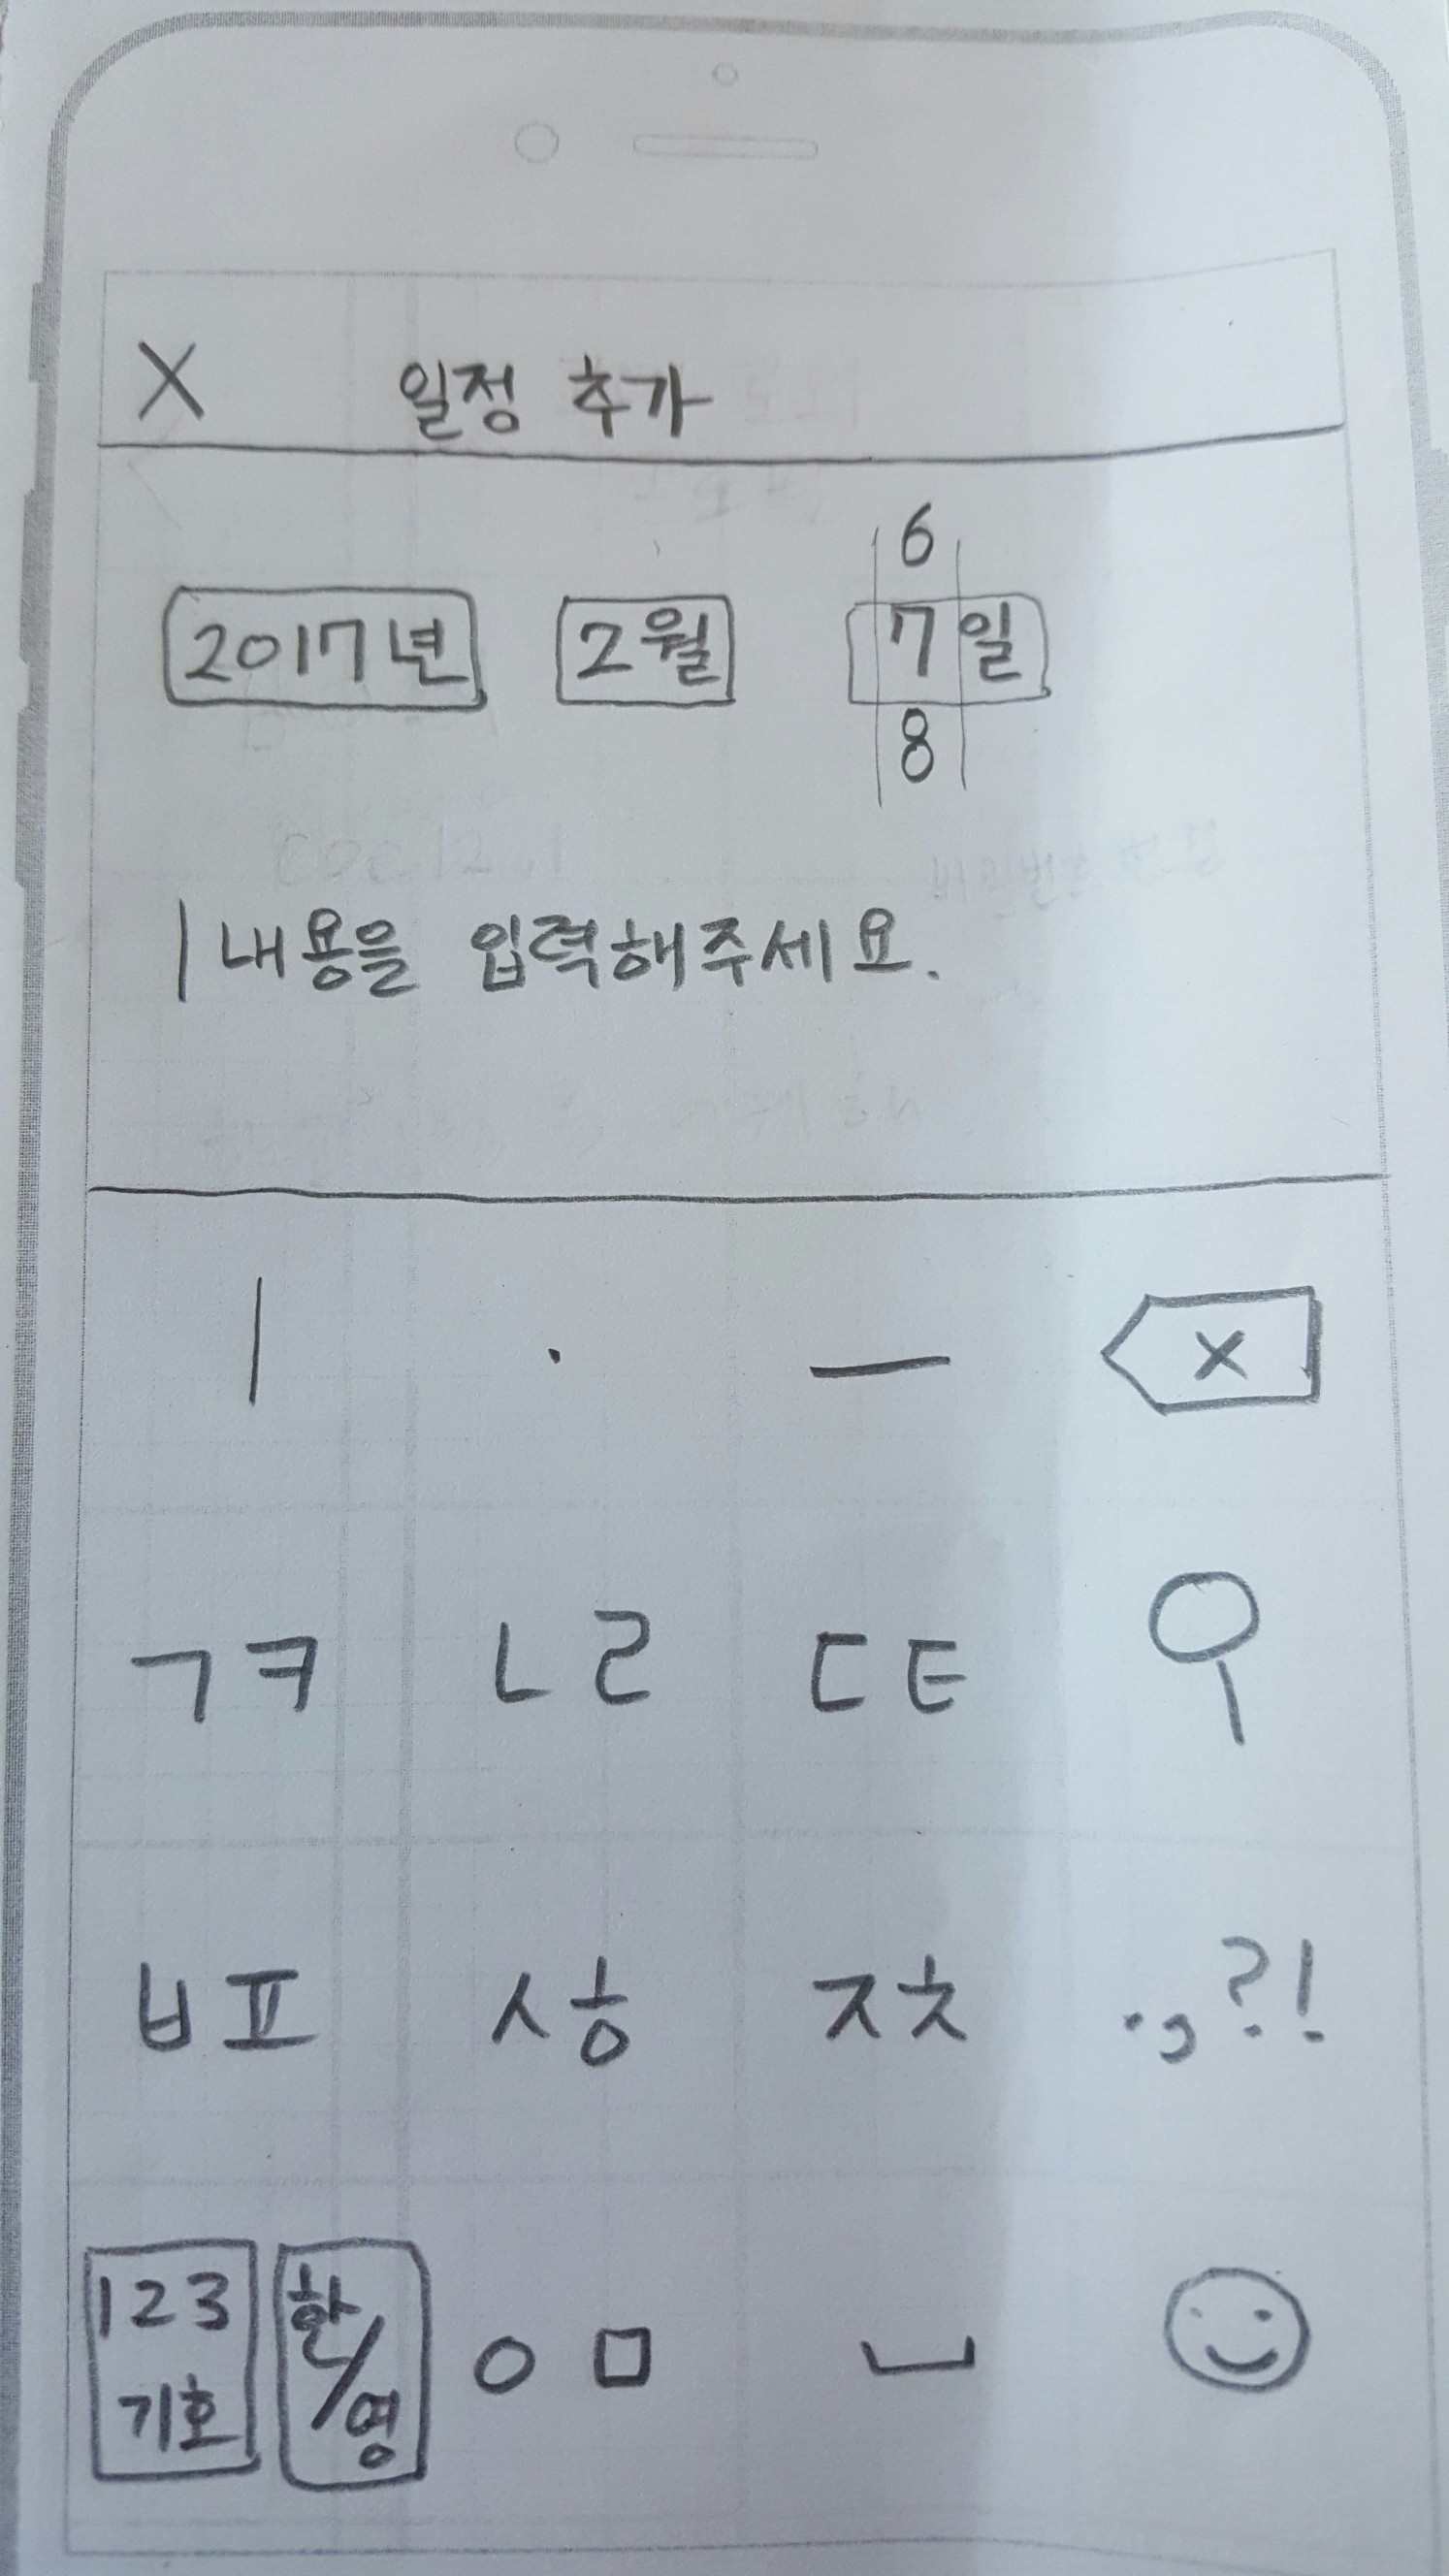 X 일정 추가
6
2017년 2월 7일
8
|내용을 입력해주세요.
ㅣ · ㅡ X
ㄱㅋ ㄴㄹ ㄷㅌ
ㅂㅍ ㅅㅎ ㅈㅊ .,?!
123 한/영 ㅇㅁ
기호